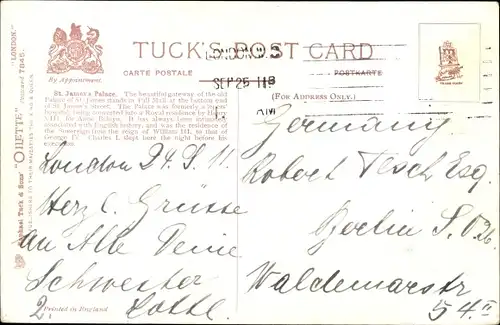 TUCK'S POST CARD
CARTE POSTALE
POSTKARTE
By Appointment
(FOR ADDRESS ONLY.)
SEP 25 11
St. James's Palace. The beautiful gateway of the old
Palace of St. James stands in Pall Mall at the bottom end
of St. James's Street. The Palace was formerly a
Hospital, being converted into a Royal residence by Henry
VIII. for Anne Boleyn. It has always been
associated with English history, and was the residence of
the Sovereign from the reign of William III. to that of
George IV. Charles I. slept here the night before his
execution.
London 24.9.11.
Herzl. Grüsse
an Alle Deine
Schwester
Lottl.
Germany
Robert Tesch Esq.
Berlin S.O.26.
Waldemarstr
54 II
Printed in England
Raphael Tuck & Sons' "OILETTE" Postcard 7845.
"LONDON."
TO THEIR MAJESTIES THE KING & QUEEN